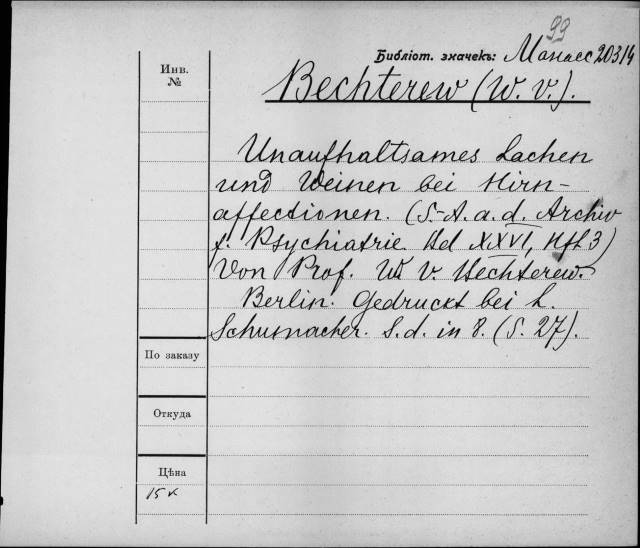 99
Библіот. значекъ: Манасс 20314
Инв. №
Bechterew (W. v.).
Unaufhaltsames Lachen
und Weinen bei Hirn-
affectionen. (S.-A. a. d. Archiv
f. Psychiatrie Bd XXVI, Hft 3)
Von Prof. W. v. Bechterew.
Berlin. Gedruckt bei L.
Schumacher. S. d. in 8. (S. 27).
По заказу
Откуда
Цѣна
15 к